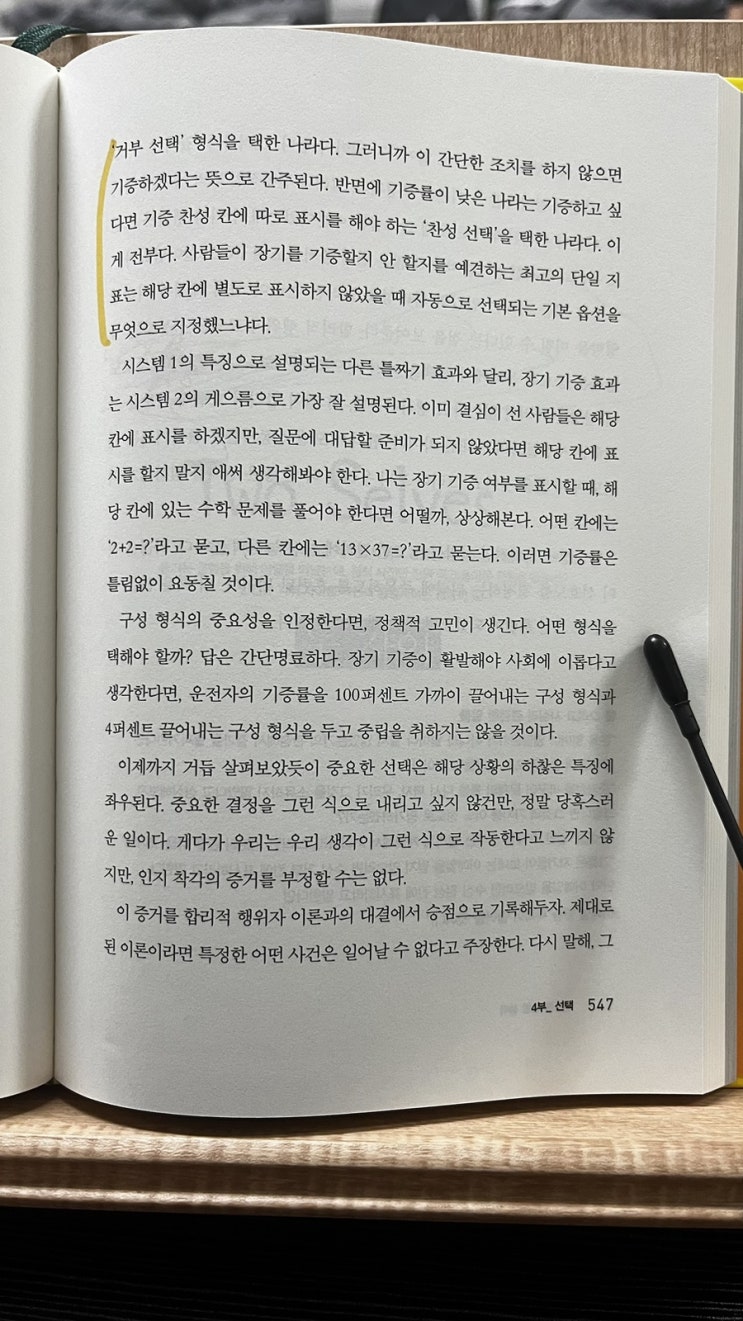 ‘거부 선택’ 형식을 택한 나라다. 그러니까 이 간단한 조치를 하지 않으면
기증하겠다는 뜻으로 간주된다. 반면에 기증률이 낮은 나라는 기증하고 싶
다면 기증 찬성 칸에 따로 표시를 해야 하는 ‘찬성 선택’을 택한 나라다. 이
게 전부다. 사람들이 장기를 기증할지 안 할지를 예견하는 최고의 단일 지
표는 해당 칸에 별도로 표시하지 않았을 때 자동으로 선택되는 기본 옵션을
무엇으로 지정했느냐다.
시스템 1의 특징으로 설명되는 다른 틀짜기 효과와 달리, 장기 기증 효과
는 시스템 2의 게으름으로 가장 잘 설명된다. 이미 결심이 선 사람들은 해당
칸에 표시를 하겠지만, 질문에 대답할 준비가 되지 않았다면 해당 칸에 표
시를 할지 말지 애써 생각해봐야 한다. 나는 장기 기증 여부를 표시할 때, 해
당 칸에 있는 수학 문제를 풀어야 한다면 어떨까, 상상해본다. 어떤 칸에는
‘2+2=?’라고 묻고, 다른 칸에는 ‘13×37=?’라고 묻는다. 이러면 기증률은
틀림없이 요동칠 것이다.
구성 형식의 중요성을 인정한다면, 정책적 고민이 생긴다. 어떤 형식을
택해야 할까? 답은 간단명료하다. 장기 기증이 활발해야 사회에 이롭다고
생각한다면, 운전자의 기증률을 100퍼센트 가까이 끌어내는 구성 형식과
4퍼센트 끌어내는 구성 형식을 두고 중립을 취하지는 않을 것이다.
이제까지 거듭 살펴보았듯이 중요한 선택은 해당 상황의 하찮은 특징에
좌우된다. 중요한 결정을 그런 식으로 내리고 싶지 않건만, 정말 당혹스러
운 일이다. 게다가 우리는 우리 생각이 그런 식으로 작동한다고 느끼지 않
지만, 인지 착각의 증거를 부정할 수는 없다.
이 증거를 합리적 행위자 이론과의 대결에서 승점으로 기록해두자. 제대로
된 이론이라면 특정한 어떤 사건은 일어날 수 없다고 주장한다. 다시 말해, 그
4부_ 선택 547